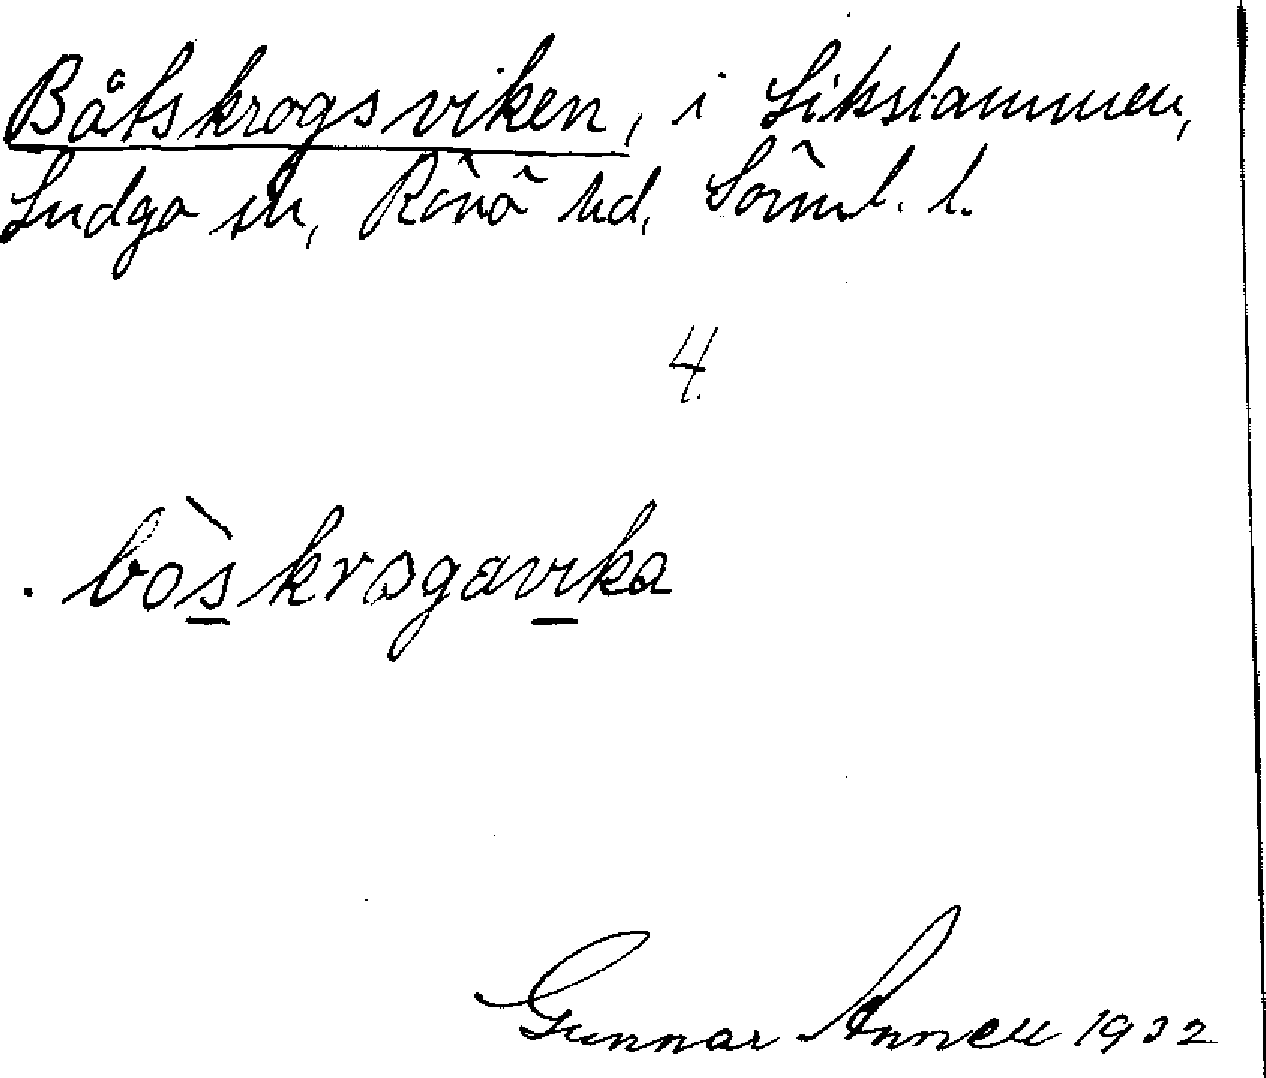 Båtskrogsviken, i Likstammen,
Ludgo sn, Rönö hd, Sörml. l.
4.
bòskrogavika
Gunnar Annell 1932